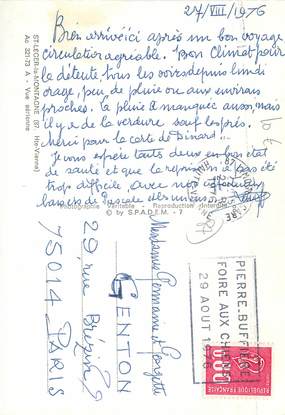 27/VIII/1976
Bien arrivé ici après un bon voyage
circulation agréable. Bon Climat pour
la détente, tous les soirs depuis lundi
orage, peu de pluie ou aux environs
proches. la pluie a manquée aussi, mais
il y a de la verdure sous les prés.
Merci pour la carte de Dinard...
Je vous espère toutes deux en bon état
de santé et que la reprise n'a pas été
trop difficile, avec mes
baisers de
ST-LEGER-la-MONTAGNE (87. Hte-Vienne)
Ac 321-73 A - Vue aérienne
Photographie Véritable - Reproduction Interdite
© by S.P.A.D.E.M. - 7
Mesdames Germaine et Georgette
GENTON
29, rue Brézin
75014 PARIS
PIERRE-BUFFIÈRE
FOIRE AUX
29 AOUT 1976